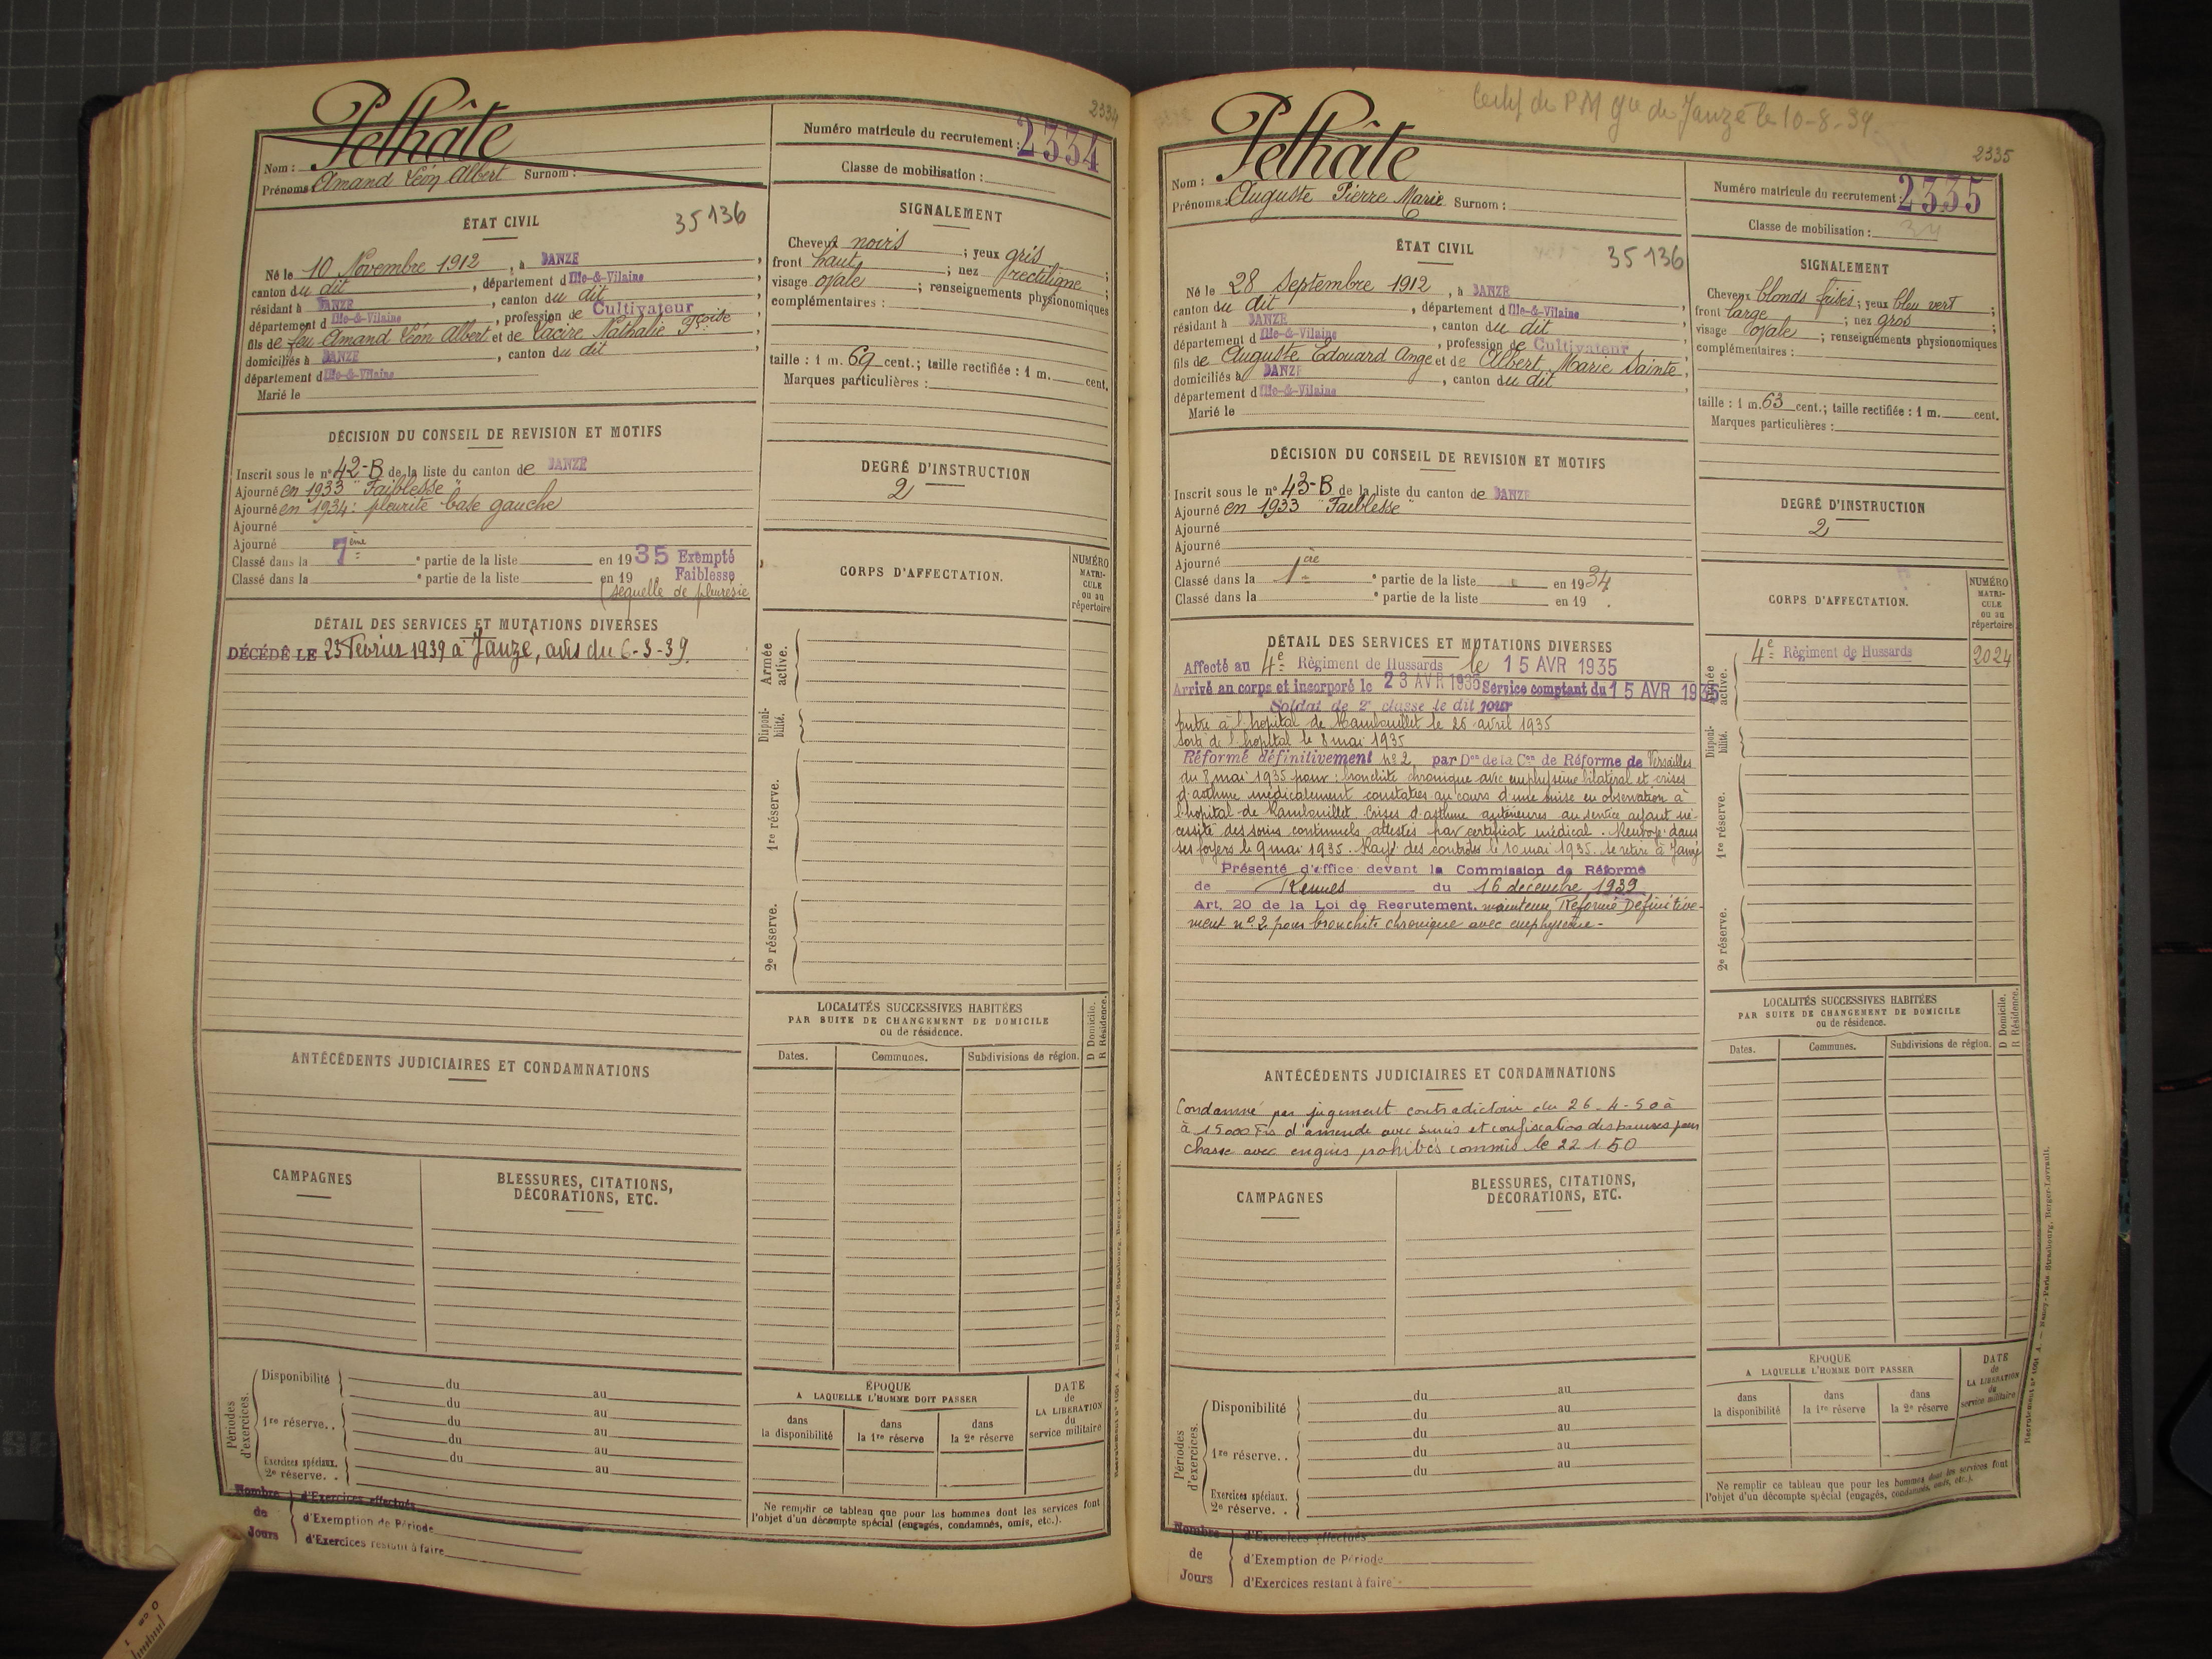 2334
Pelhâte
Nom :
Prénoms : Amand Léon Albert Surnom :
Numéro matricule du recrutement : 2334
Classe de mobilisation :
ÉTAT CIVIL
35 136
Né le 10 Novembre 1912, à JANZÉ
canton du dit, département d Ille-&-Vilaine
résidant à JANZÉ, canton du dit
département d Ille-&-Vilaine, profession de Cultivateur
fils de feu Amand Léon Albert et de Vacire Nathalie Fçoise
domiciliés à JANZÉ, canton du dit
département d Ille-&-Vilaine
Marié le
SIGNALEMENT
Cheveux noirs ; yeux gris ;
front haut ; nez rectiligne ;
visage ovale ; renseignements physionomiques
complémentaires :
taille : 1 m. 69 cent.; taille rectifiée : 1 m. cent.
Marques particulières :
DÉCISION DU CONSEIL DE REVISION ET MOTIFS
Inscrit sous le n° 42-B de la liste du canton de JANZÉ
Ajourné en 1933 "Faiblesse"
Ajourné en 1934 : pleurite base gauche
Ajourné
Ajourné
Classé dans la 7ème ° partie de la liste en 1935 Exempté
Classé dans la ° partie de la liste en 19 Faiblesse
(séquelle de pleurésie
DEGRÉ D'INSTRUCTION
2
DÉTAIL DES SERVICES ET MUTATIONS DIVERSES
DÉCÉDÉ LE 25 Février 1939 à Janzé, avis du 6-3-39.
CORPS D'AFFECTATION.
NUMÉRO
MATRI-
CULE
ou au
répertoire
Armée active.
Disponi-bilité.
1re réserve.
2e réserve.
LOCALITÉS SUCCESSIVES HABITÉES
PAR SUITE DE CHANGEMENT DE DOMICILE
ou de résidence.
D Domicile.
R Résidence.
Dates. Communes. Subdivisions de région.
ANTÉCÉDENTS JUDICIAIRES ET CONDAMNATIONS
CAMPAGNES
BLESSURES, CITATIONS,
DÉCORATIONS, ETC.
Périodes d'exercices.
Disponibilité du au
du au
1re réserve. . du au
du au
Exercices spéciaux. du au
2e réserve. . du au
ÉPOQUE
A LAQUELLE L'HOMME DOIT PASSER
dans la disponibilité
dans la 1re réserve
dans la 2e réserve
DATE
de
LA LIBÉRATION
du
service militaire
Ne remplir ce tableau que pour les hommes dont les services font
l'objet d'un décompte spécial (engagés, condamnés, omis, etc.).
Nombre de Jours
d'Exercices effectués
d'Exemption de Période
d'Exercices restant à faire
Recrutement n° 1091 A. — Nancy-Paris-Strasbourg, Berger-Levrault.
Certif de PM Gie de Janzé le 10-8-34.
2335
Pelhâte
Nom :
Prénoms : Auguste Pierre Marie Surnom :
Numéro matricule du recrutement : 2335
Classe de mobilisation : 34
ÉTAT CIVIL
35 136
Né le 28 Septembre 1912, à JANZÉ
canton du dit, département d Ille-&-Vilaine
résidant à JANZÉ, canton du dit
département d Ille-&-Vilaine, profession de Cultivateur
fils de Auguste Edouard Ange et de Albert Marie Sainte
domiciliés à JANZÉ, canton du dit
département d Ille-&-Vilaine
Marié le
SIGNALEMENT
Cheveux blonds frisés ; yeux bleu vert ;
front large ; nez gros ;
visage ovale ; renseignements physionomiques
complémentaires :
taille : 1 m. 63 cent.; taille rectifiée : 1 m. cent.
Marques particulières :
DÉCISION DU CONSEIL DE REVISION ET MOTIFS
Inscrit sous le n° 43-B de la liste du canton de JANZÉ
Ajourné en 1933 "Faiblesse"
Ajourné
Ajourné
Ajourné
Classé dans la 1ère ° partie de la liste en 1934
Classé dans la ° partie de la liste en 19
DEGRÉ D'INSTRUCTION
2
DÉTAIL DES SERVICES ET MUTATIONS DIVERSES
Affecté au 4e Régiment de Hussards le 15 AVR 1935
Arrivé au corps et incorporé le 23 AVR 1935 Service comptant du 15 AVR 1935
Soldat de 2e classe le dit jour
Entré à l'hôpital de Rambouillet le 26 avril 1935
Sorti de l'hopital le 8 mai 1935
Réformé définitivement n° 2 par Don de la Con de Réforme de Versailles
du 8 mai 1935 pour : bronchite chronique avec emphysème bilatéral et crises
d'asthme médicalement constatées au cours d'une mise en observation à
l'hopital de Rambouillet. Crises d'asthme antérieures au service ayant né-
cessité des soins continuels attestés par certificat médical. Renvoyé dans
ses foyers le 9 mai 1935. Rayé des contrôles le 10 mai 1935. Se retire à Janzé
Présenté d'office devant la Commission de Réforme
de Rennes du 16 décembre 1939
Art. 20 de la Loi de Recrutement. maintenu Réformé Définitive-
ment n° 2 pour bronchite chronique avec emphysème -
CORPS D'AFFECTATION.
NUMÉRO
MATRI-
CULE
ou au
répertoire
Armée active.
4e Régiment de Hussards 2024
Disponi-bilité.
1re réserve.
2e réserve.
LOCALITÉS SUCCESSIVES HABITÉES
PAR SUITE DE CHANGEMENT DE DOMICILE
ou de résidence.
D Domicile.
R Résidence.
Dates. Communes. Subdivisions de région.
ANTÉCÉDENTS JUDICIAIRES ET CONDAMNATIONS
Condamné par jugement contradictoire du 26-4-50 à
à 15000 Frs d'amende avec sursis et confiscation des panneaux pour
chasse avec engins prohibés commis le 22 1 50
CAMPAGNES
BLESSURES, CITATIONS,
DÉCORATIONS, ETC.
Périodes d'exercices.
Disponibilité du au
du au
1re réserve. . du au
du au
du au
Exercices spéciaux.
2e réserve. .
ÉPOQUE
A LAQUELLE L'HOMME DOIT PASSER
dans la disponibilité
dans la 1re réserve
dans la 2e réserve
DATE
de
LA LIBÉRATION
du
service militaire
Ne remplir ce tableau que pour les hommes dont les services font
l'objet d'un décompte spécial (engagés, condamnés, omis, etc.).
Nombre de Jours
d'Exercices effectués
d'Exemption de Période
d'Exercices restant à faire
Recrutement n° 1091 A. — Nancy-Paris-Strasbourg, Berger-Levrault.